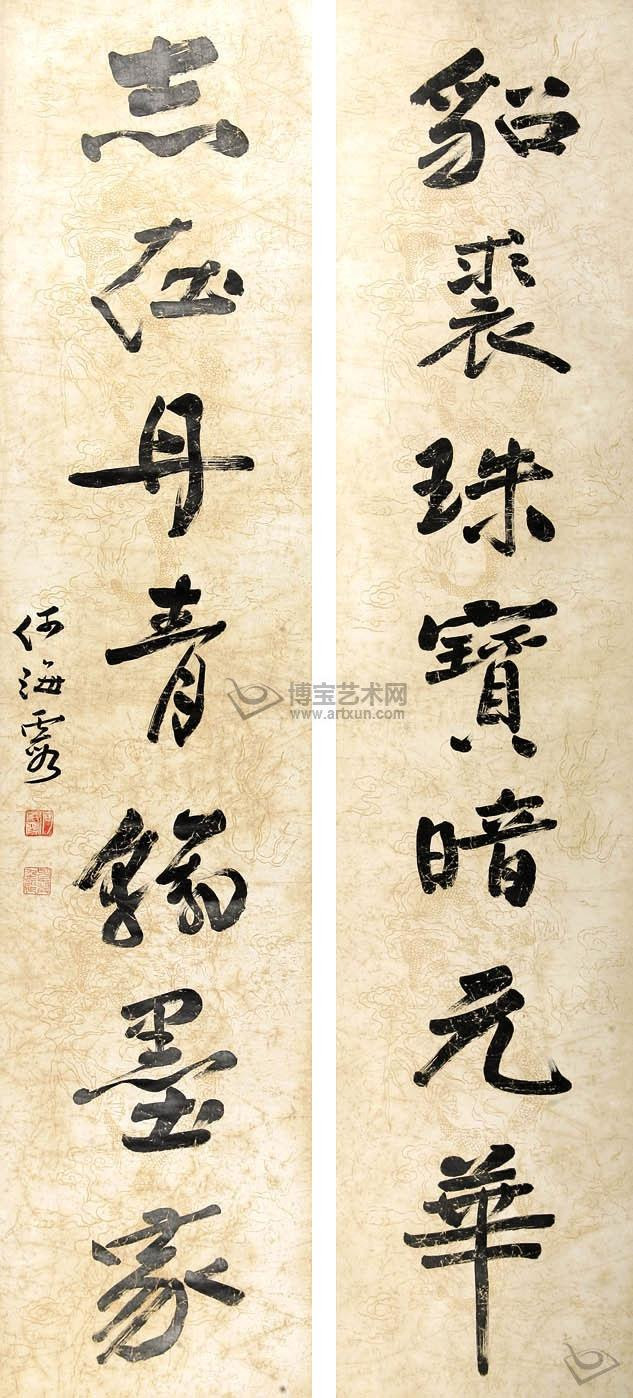 貂裘珠寶暗元華
志在丹青翰墨家
何海霞
博宝艺术网
www.artxun.com